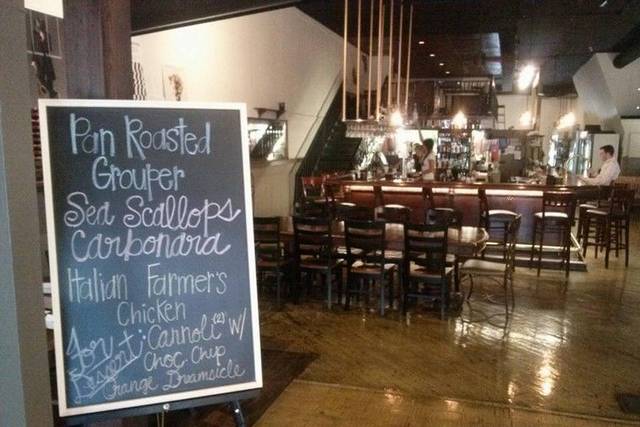 Pan Roasted
Grouper
Sea Scallops
Carbonara
Italian Farmer's
Chicken
for Dessert: Cannoli (2) w/
Choc. Chip
Orange Dreamsicle